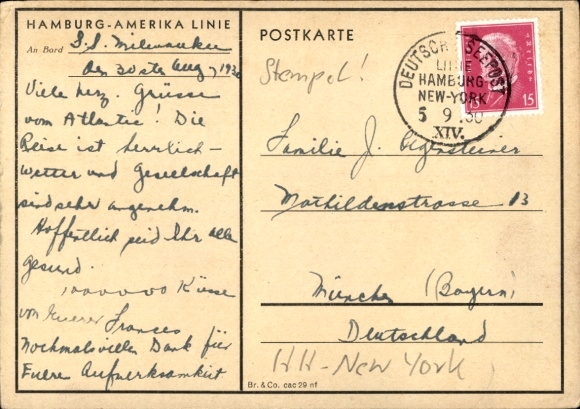 HAMBURG-AMERIKA LINIE
An Bord S.S. Milwaukee
den 30ster Aug, 1930
Viele herz. Grüsse
vom Atlantic! Die
Reise ist herrlich –
Wetter und Gesellschaft
sind sehr angenehm.
Hoffentlich seid Ihr alle
gesund.
1000000 Küsse
von Euerer Frances
Nochmals vielen Dank für
Euere Aufmerksamkeit
POSTKARTE
Stempel!
DEUTSCHE SEEPOST
LINIE
HAMBURG-
NEW-YORK
5 9 .30
XIV.
15
Familie J.
Mathildenstrasse 13
München (Bayern)
Deutschland
HH-New York
Br. & Co. cac 29 nf